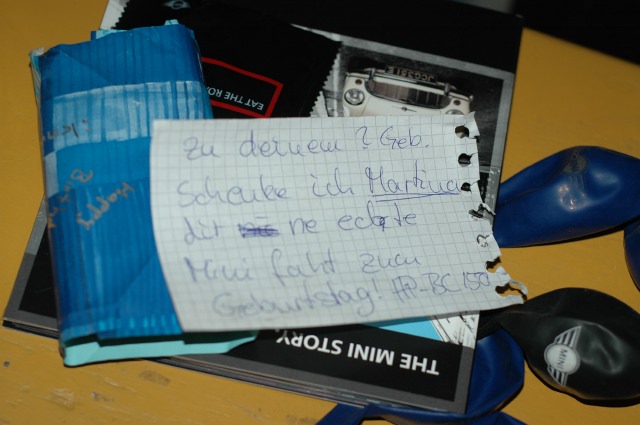 Zu deinem ? Geb.
Schenke ich Martina
dir ne echte
Mini faht zum
Geburtstag! HP-BC 150
THE MINI STORY.
EAT THE RO
JCG351E
Happy
MINI